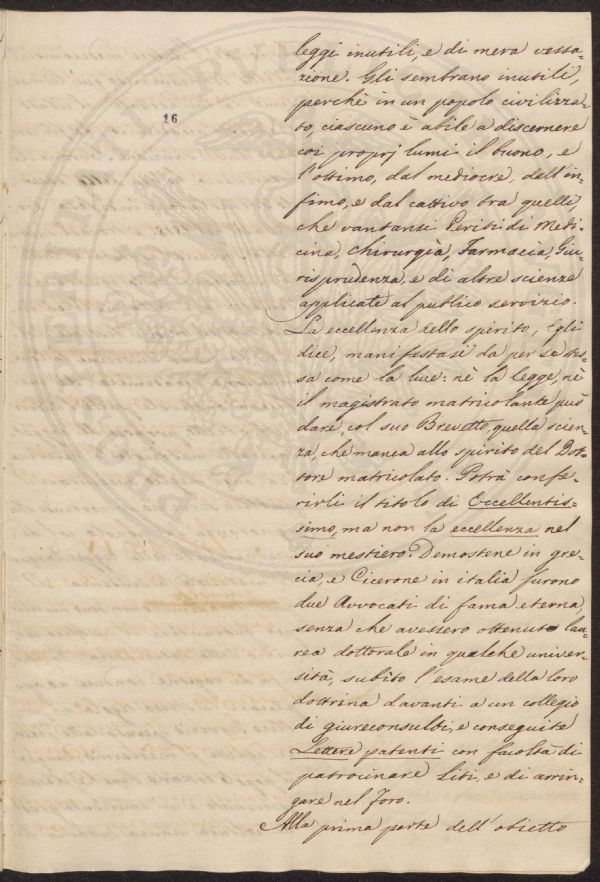 16
leggi inutili, e di mera vessa-
zione. Gli sembrano inutili,
perchè in un popolo civilizza-
to, ciascuno è abile a discernere
coi proprj lumi il buono, e
l'ottimo, dal mediocre, dall'in-
fimo, e dal cattivo tra quelli,
che vantansi Periti di Medi-
cina, Chirurgia, Farmacia, Giu-
risprudenza, e di altre scienze
applicate al publico servizio.
La eccellenza dello spirito, Egli
dice, manifestasi da per se stes-
sa come la luce: nè la legge, nè
il magistrato matricolante può
dare, col suo Brevetto, quella scien-
za, che manca allo spirito del Dot-
tore matricolato. Potrà confe-
rirli il titolo di Eccellentis-
simo, ma non la eccellenza nel
suo mestiero. Demostene in gre-
cia, e Cicerone in italia furono
due Avvocati di fama eterna,
senza che avessero ottenuto lau-
rea dottorale in qualche univer-
sità, subìto l'esame della loro
dottrina davanti a un collegio
di giureconsulti, e conseguite
Lettere patenti con facoltà di
patrocinare Liti, e di arrin-
gare nel Foro.
Alla prima parte dell'obietto